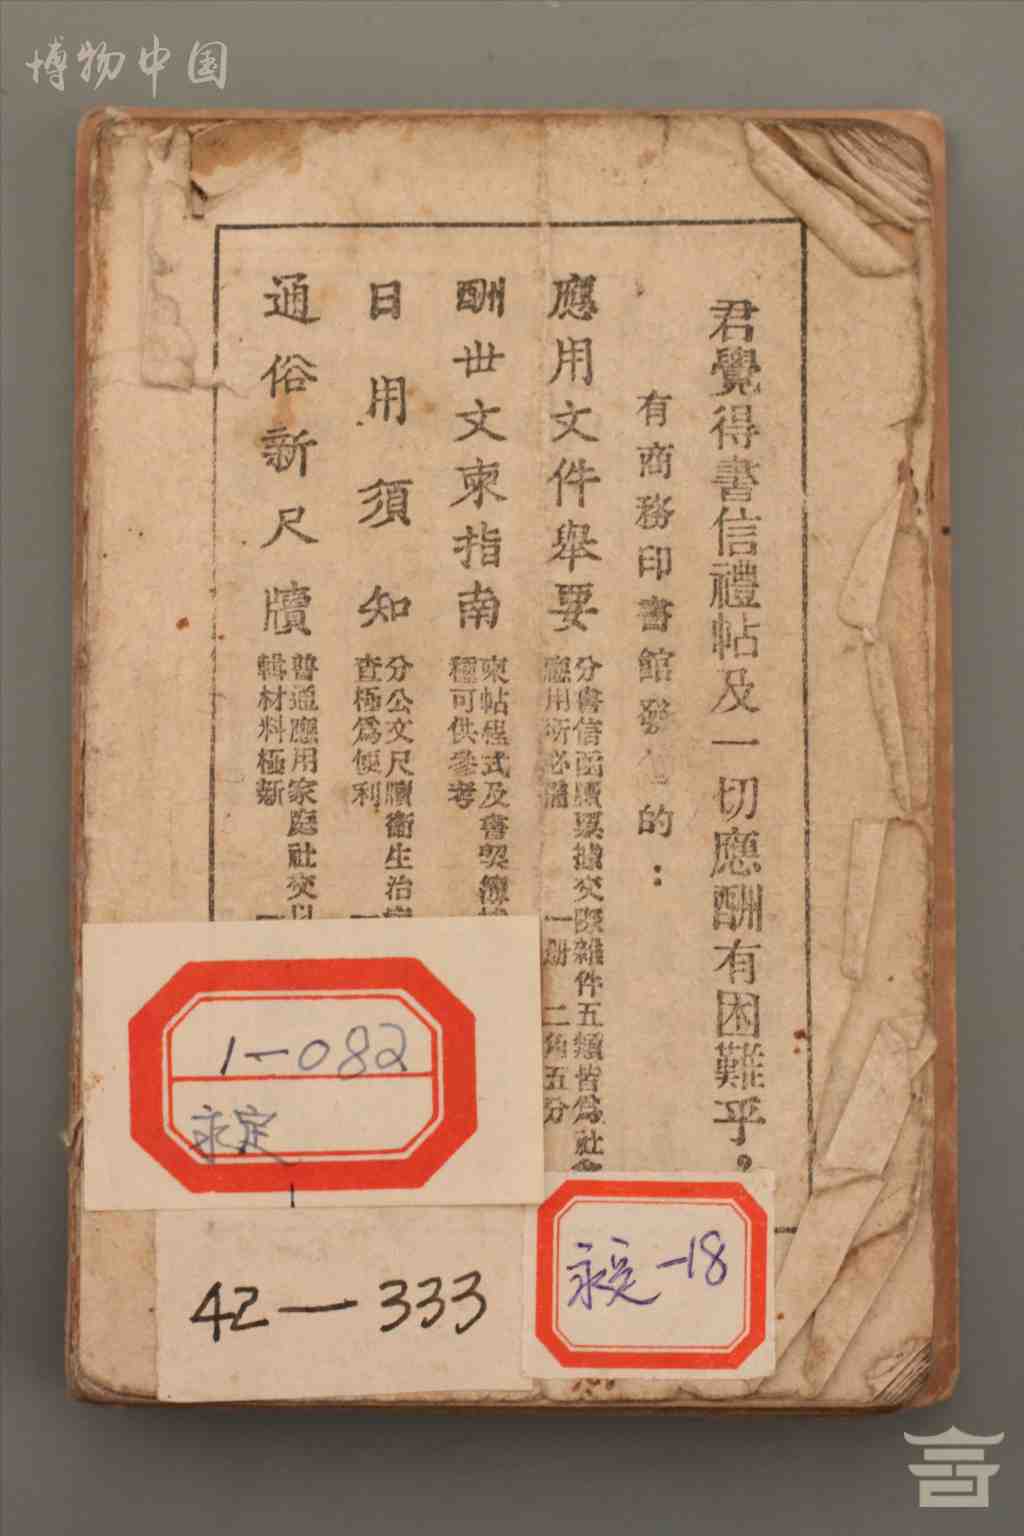 博物中国
君覺得書信禮帖及一切應酬有困難乎，
有商務印書館發 的：
應用文件舉要
分書信函牘票據交際雜件五類皆為社會
應用所必備 一册 二角五分
酬世文柬指南
柬帖程式及書契
種可供參考
日用須知
分公文尺牘衞生治
查極為便利
通俗新尺牘
普通應用家庭社交
輯材料極新
1-082
永定
42-333
永定-18